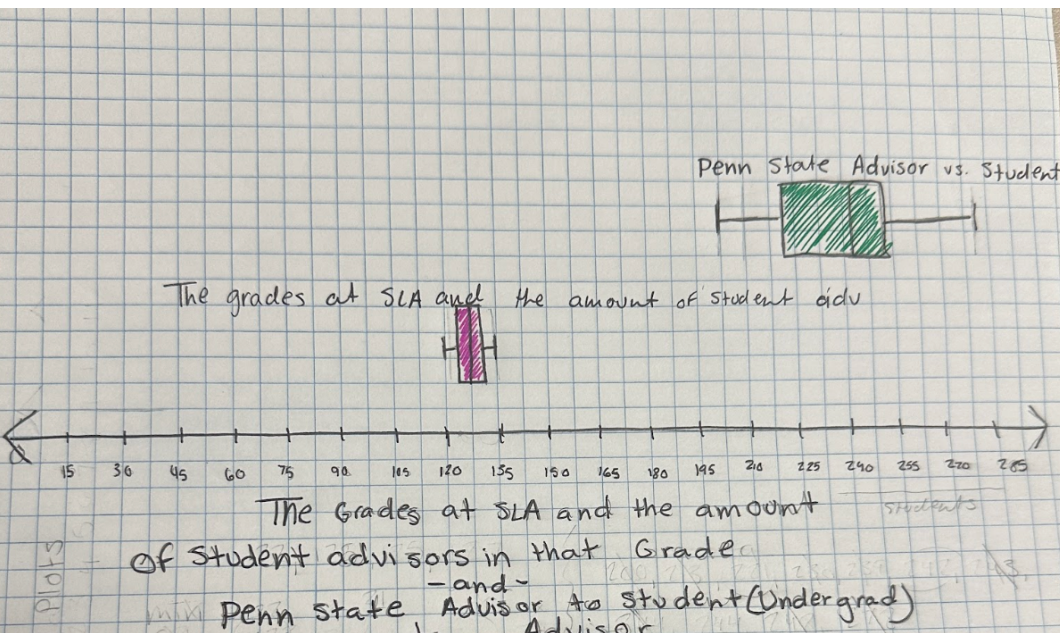 Penn State Advisor vs. Student
The grades at SLA and the amount of Student adv
15 30 45 60 75 90 105 120 135 150 165 180 195 210 225 240 255 270 285
The Grades at SLA and the amount
students
Of Student advisors in that Grade
-and-
Penn State Advisor to Student (Undergrad)
Advisor
Plots